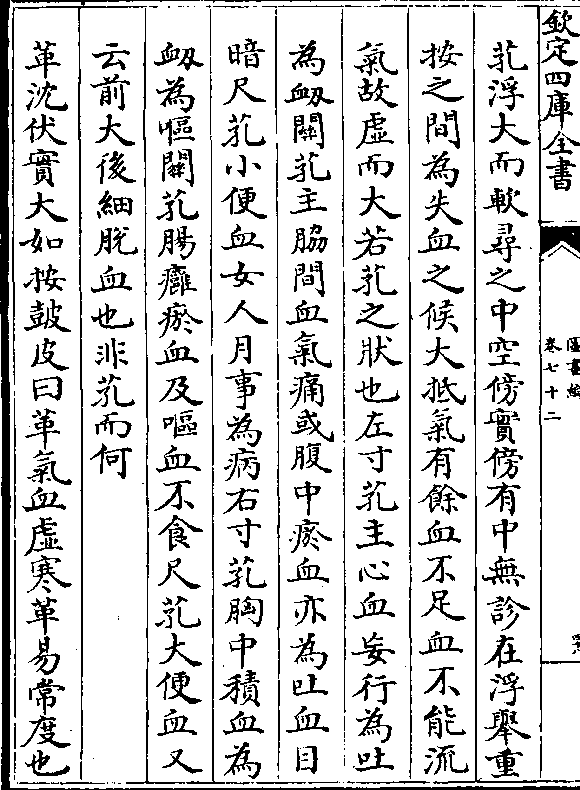 欽定四庫全書
圖書編
卷七十二
芤浮大而軟尋之中空傍實傍有中無診在浮舉重
按之間為失血之候大抵氣有餘血不足血不能流
氣故虛而大若芤之狀也左寸芤主心血妄行為吐
為衂關芤主脇間血氣痛或腹中瘀血亦為吐血目
暗尺芤小便血女人月事為病右寸芤胸中積血為
衂為嘔關芤腸癰瘀血及嘔血不食尺芤大便血又
云前大後細脫血也非芤而何
革沈伏實大如按鼓皮曰革氣血虛寒革易常度也